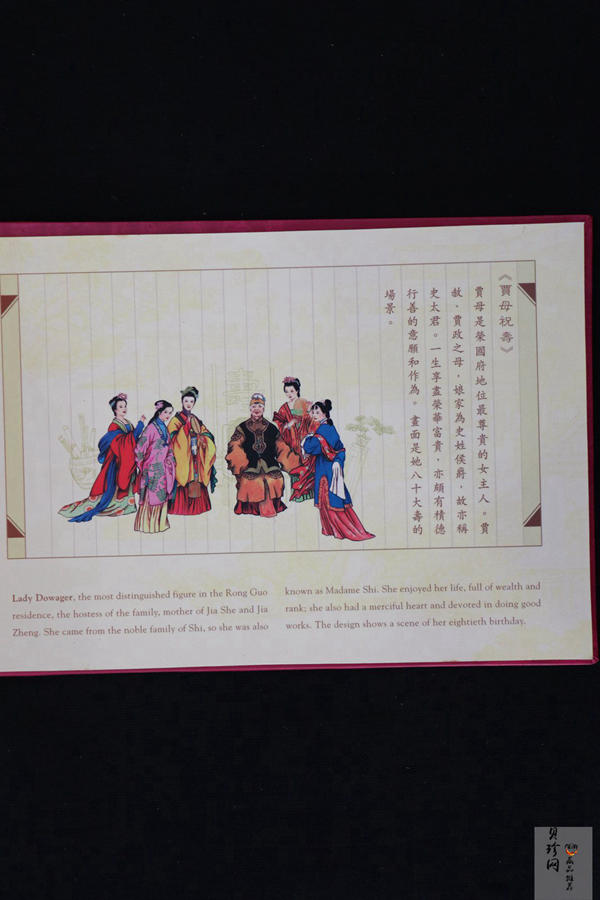 《賈母祝壽》
賈母是榮國府地位最尊貴的女主人。賈
赦，賈政之母，娘家為史姓侯爵，故亦稱
史太君。一生享盡榮華富貴，亦頗有積德
行善的意願和作為。畫面是她八十大壽的
場景。
Lady Dowager, the most distinguished figure in the Rong Guo
residence, the hostess of the family, mother of Jia She and Jia
Zheng. She came from the noble family of Shi, so she was also
known as Madame Shi. She enjoyed her life, full of wealth and
rank; she also had a merciful heart and devoted in doing good
works. The design shows a scene of her eightieth birthday.
贝珍网
藏品推荐